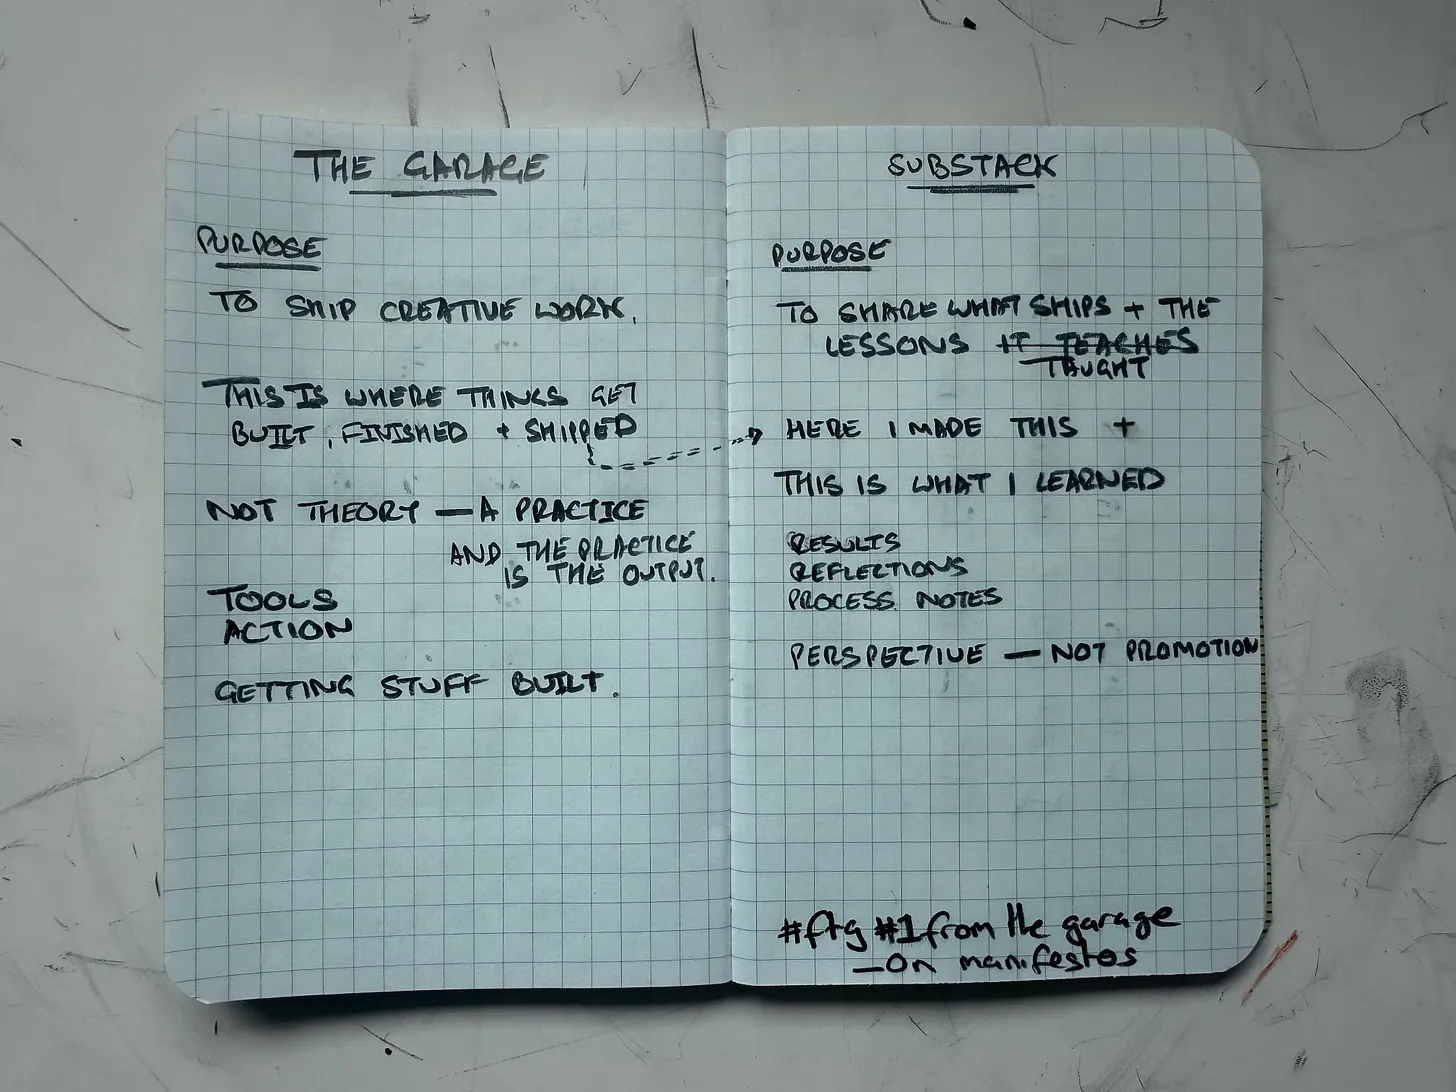 THE GARAGE
PURPOSE
TO SHIP CREATIVE WORK.
THIS IS WHERE THINGS GET
BUILT, FINISHED + SHIPPED
NOT THEORY — A PRACTICE
AND THE PRACTICE
IS THE OUTPUT.
TOOLS
ACTION
GETTING STUFF BUILT.
SUBSTACK
PURPOSE
TO SHARE WHAT SHIPS + THE
LESSONS IT TEACHES
TAUGHT
HERE I MADE THIS +
THIS IS WHAT I LEARNED
RESULTS
REFLECTIONS
PROCESS NOTES
PERSPECTIVE — NOT PROMOTION
#ftg #1 from the garage
— on manifestos